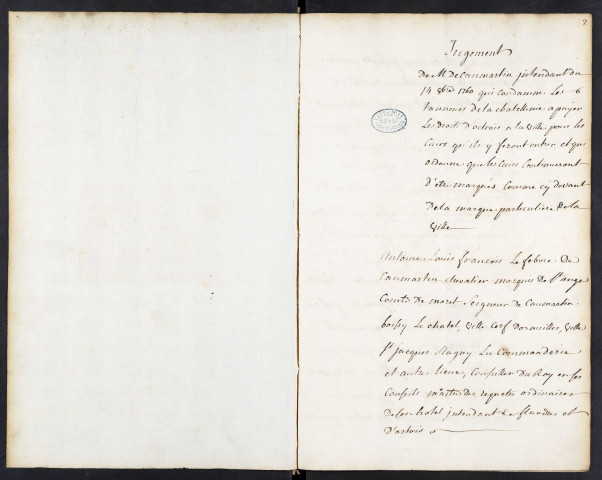 2
Jugement
De Mr De Caumartin jntendant du
14 8bre 1760 qui condamne Les 6
tanneurs de la chatellenie a payer
Les droits d'octrois a la ville pour les
Cuirs qu'ils y feront entrer et qui
ordonne que les Cuirs Continueront
d'être marqués Comme cy devant
De la marque particuliere de la
Ville
Antoine Louis francois Le febvre De
Caumartin chevalier marquis de St ange
Comte de moret Seigneur de Caumartin
boissy Le chatel, Ville cerf
St jacques La Commanderie
et autres Lieux, Conseiller Du Roy en ses
Conseils maitre des requetes ordinaire
De son hotel jntendant de flandres et
D'artois